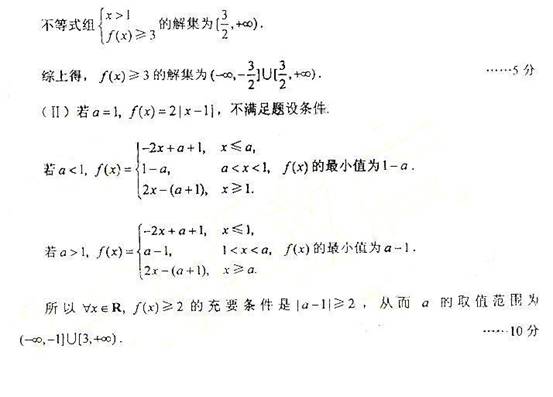 不等式组{x>1, f(x)≥3 的解集为[3/2,+∞).
综上得, f(x)≥3的解集为(-∞,-3/2]∪[3/2,+∞). ……5分
(Ⅱ)若a=1, f(x)=2|x-1|, 不满足题设条件.
若a<1, f(x)={-2x+a+1, x≤a, 1-a, a<x<1, 2x-(a+1), x≥1. f(x)的最小值为1-a.
若a>1, f(x)={-2x+a+1, x≤1, a-1, 1<x<a, 2x-(a+1), x≥a. f(x)的最小值为a-1.
所以∀x∈R, f(x)≥2的充要条件是|a-1|≥2, 从而a的取值范围为
(-∞,-1]∪[3,+∞). ……10分